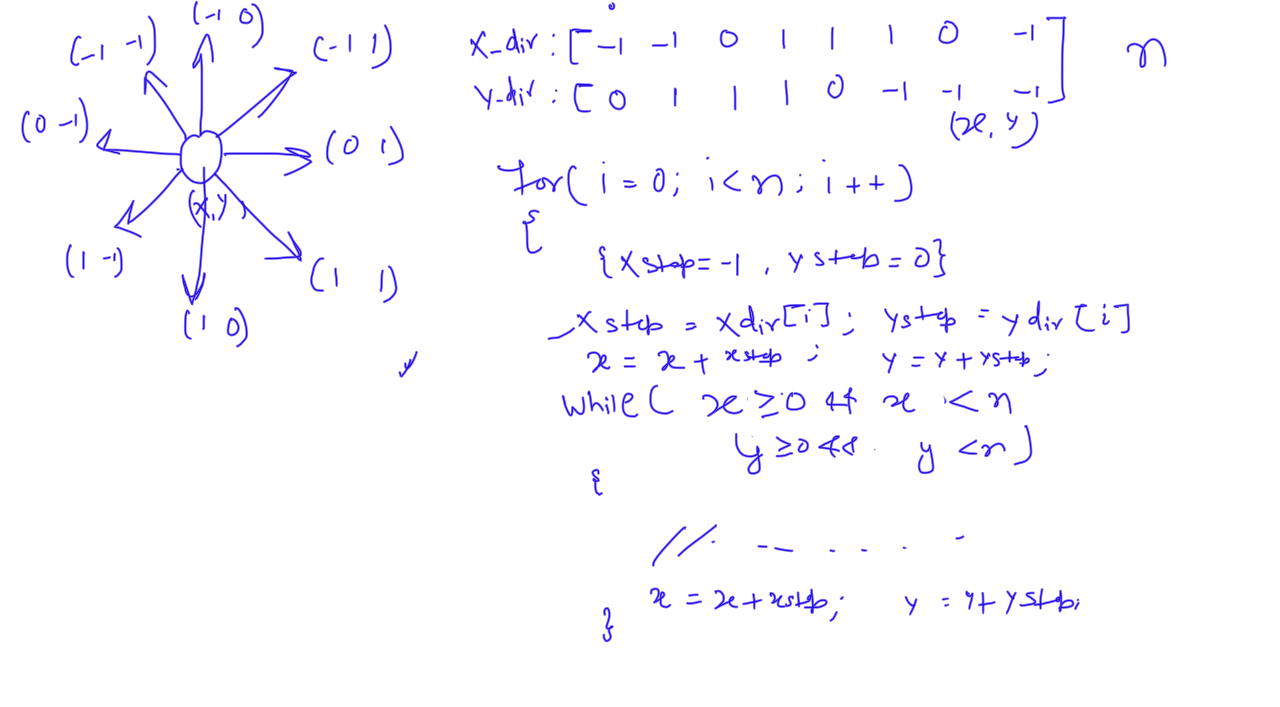 (-1 0)
(-1 -1)
(-1 1)
(0 -1)
(0 1)
(x,y)
(1 -1)
(1 1)
(1 0)
x_dir : [-1 -1 0 1 1 1 0 -1]
y_dir : [0 1 1 1 0 -1 -1 -1]
n
(x, y)
for( i = 0; i < n; i ++ )
{
{xstep = -1 , ystep = 0}
xstep = xdir[i]; ystep = ydir[i]
x = x + xstep ; y = y + ystep;
while( x ≥ 0 && x < n
y ≥ 0 && y < n )
{
// -- . . . . -
x = x + xstep; y = y + ystep;
}